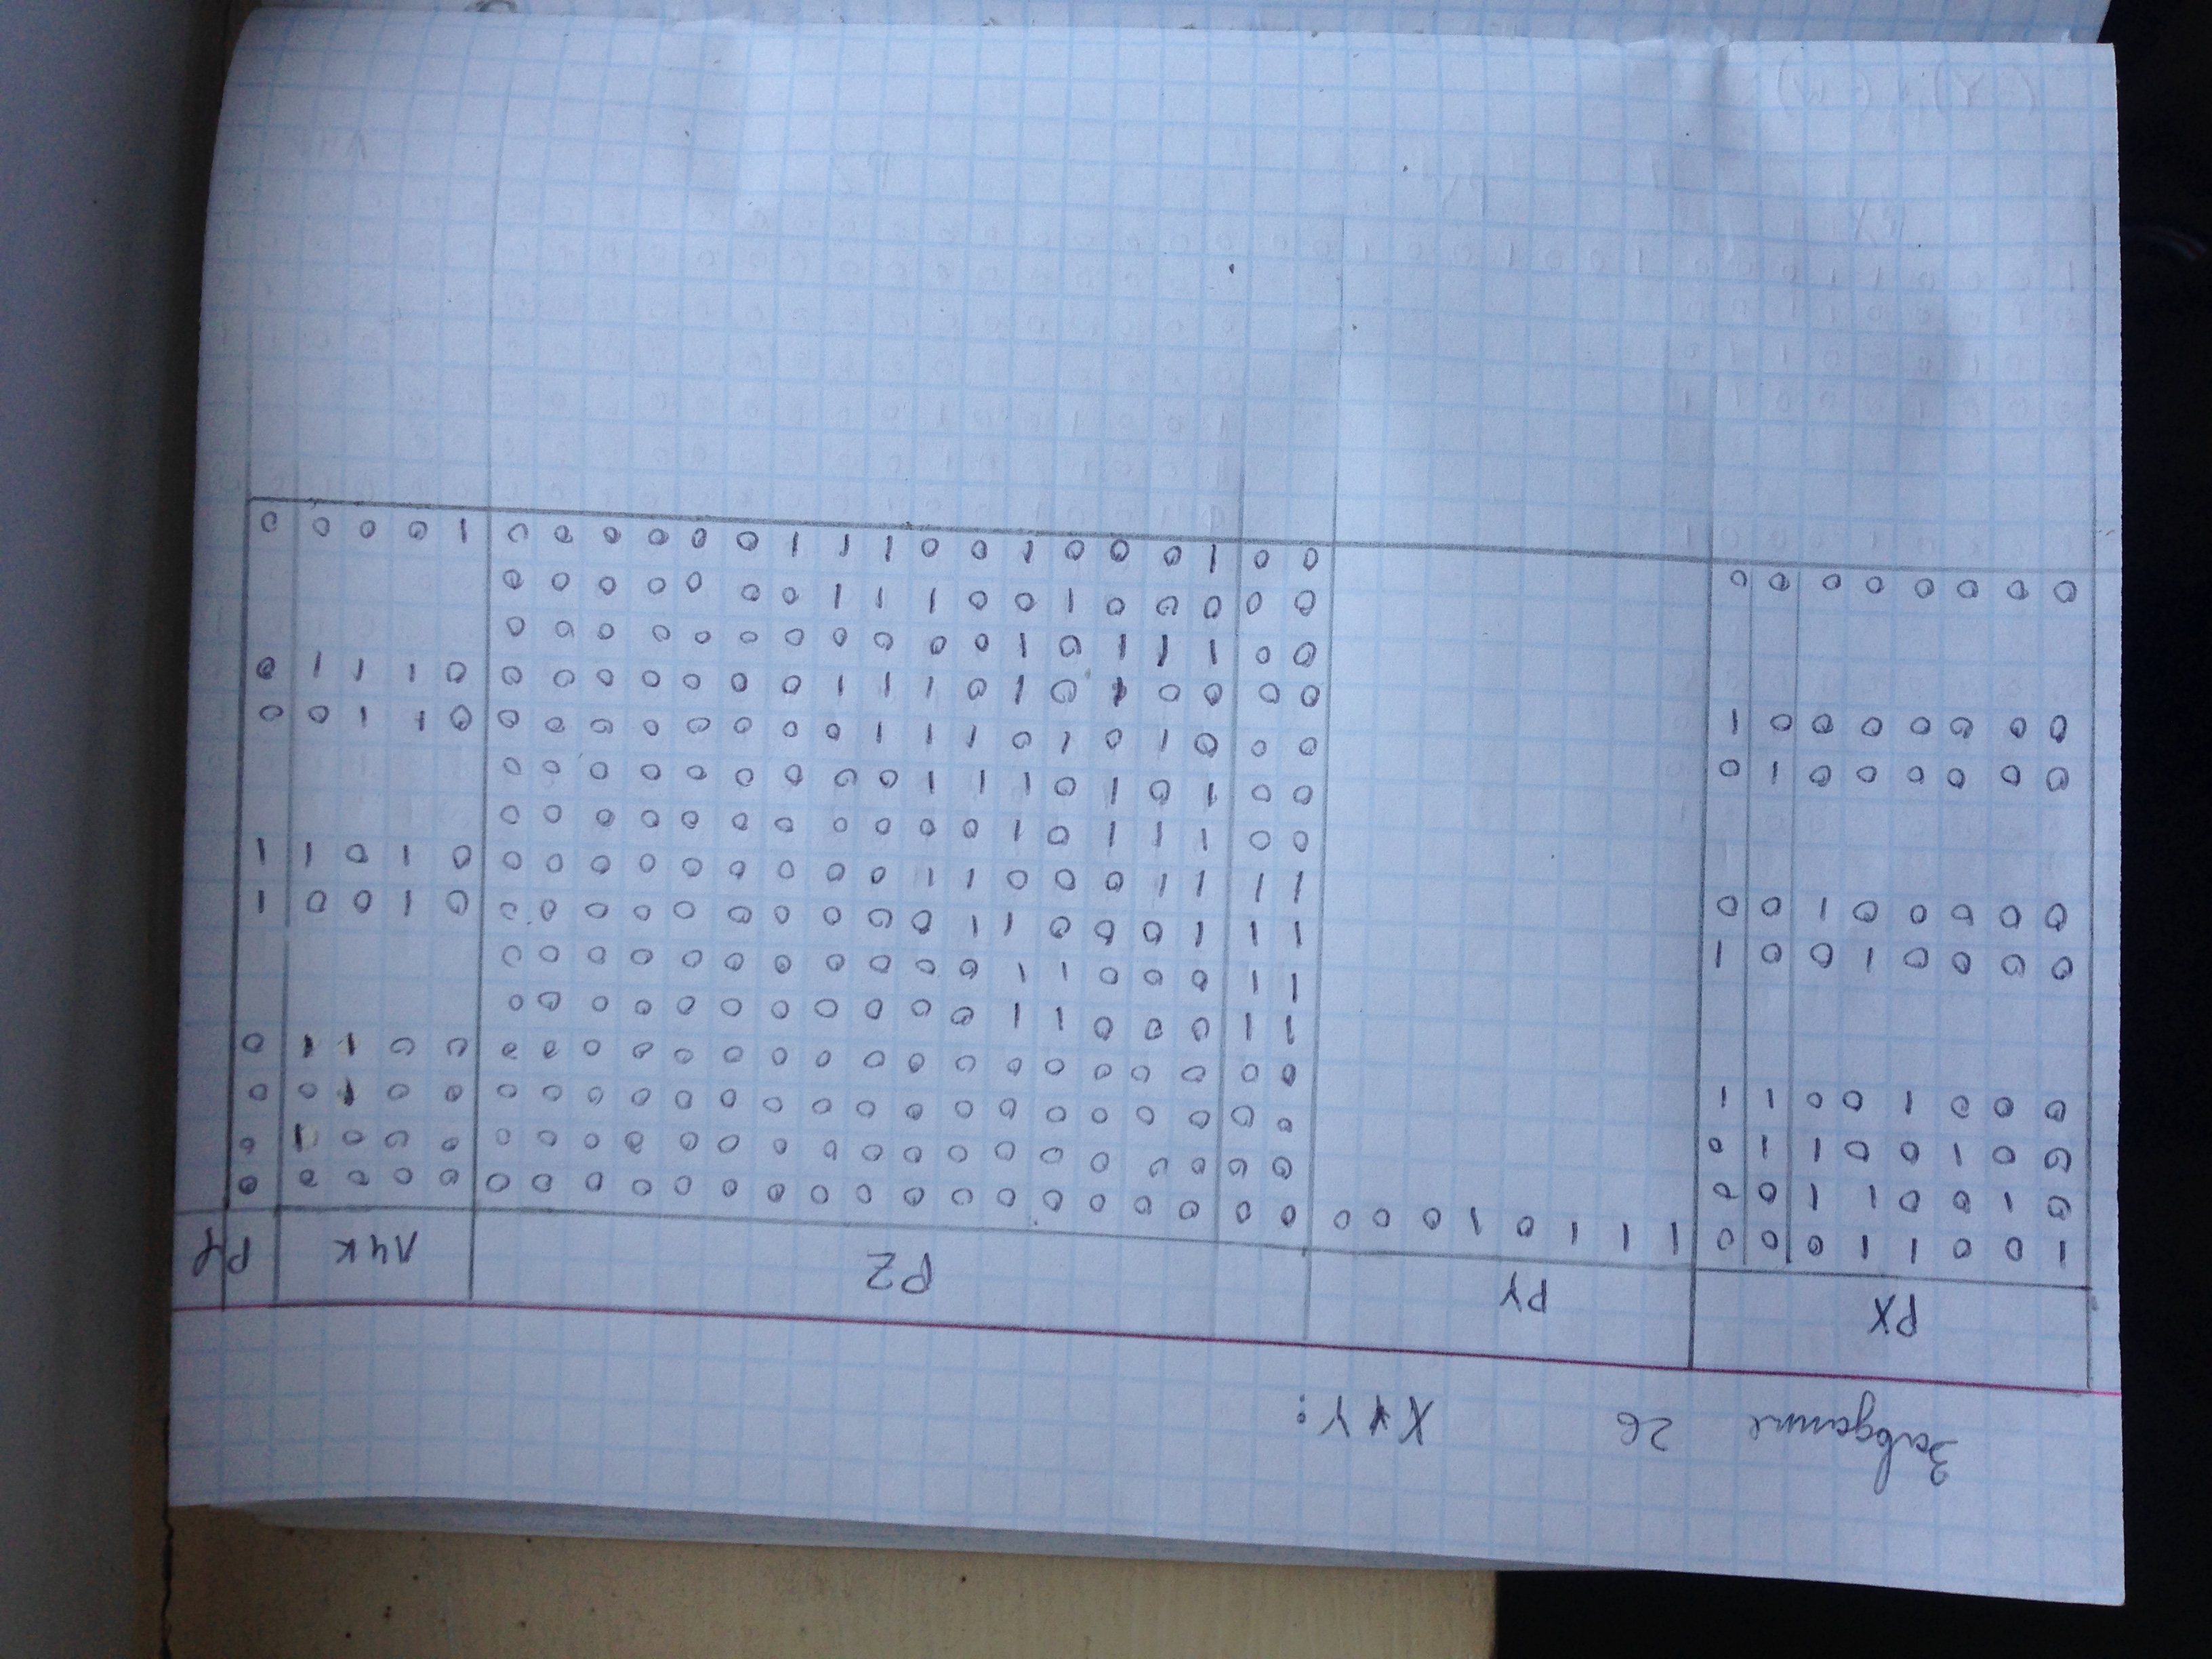 Завдання 2б X*Y:
PX PY PZ ЛЧК Pφ
1 0 0 1 1 0 0 0 1 1 1 0 1 0 0 0 0 0 0 0 0 0 0 0 0 0 0 0 0 0 0 0 0 0 0 0 0 0 0
0 1 0 0 1 1 0 0 0 0 0 0 0 0 0 0 0 0 0 0 0 0 0 0 0 0 0 0 0 1 0
0 0 1 0 0 1 1 0 0 0 0 0 0 0 0 0 0 0 0 0 0 0 0 0 0 0 0 0 1 0 0
0 0 0 1 0 0 1 1 0 0 0 0 0 0 0 0 0 0 0 0 0 0 0 0 0 0 0 0 1 1 0
1 1 0 0 0 1 1 0 0 0 0 0 0 0 0 0 0 0
1 1 0 0 0 1 1 0 0 0 0 0 0 0 0 0 0 0
0 0 0 0 1 0 0 1 1 1 1 0 0 0 1 1 0 0 0 0 0 0 0 0 0 0 0 1 0 0 1
0 0 0 0 0 1 0 0 1 1 1 1 0 0 0 1 1 0 0 0 0 0 0 0 0 0 0 1 0 1 1
0 0 1 1 1 0 1 0 0 0 0 0 0 0 0 0 0 0
0 0 1 0 1 0 1 1 1 0 0 0 0 0 0 0 0 0
0 0 0 0 0 0 1 0 0 0 0 1 0 1 0 1 1 1 0 0 0 0 0 0 0 0 0 1 1 0 0
0 0 0 0 0 0 0 1 0 0 0 0 1 0 1 0 1 1 1 0 0 0 0 0 0 0 0 1 1 1 0
0 0 1 1 1 0 1 0 0 0 0 0 0 0 0 0 0 0
0 0 0 0 0 1 0 0 1 1 1 0 0 0 0 0 0 0
0 0 0 0 0 0 0 0 0 0 1 0 0 0 1 0 0 1 1 1 0 0 0 0 0 0 1 0 0 0 0